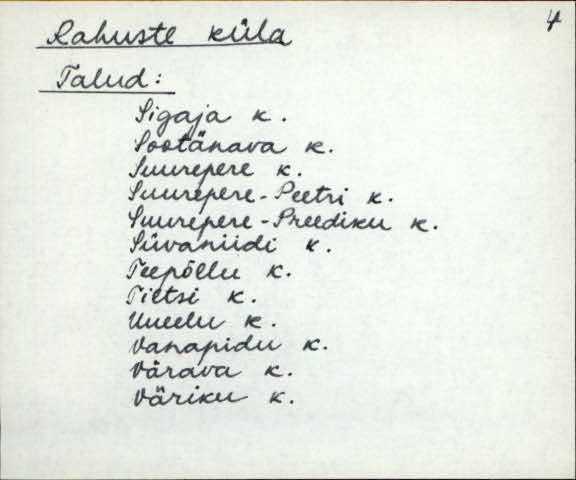 4
Rahuste küla
Talud:
Sigaja k.
Sootänava k.
Suurepere k.
Suurepere-Peetri k.
Suurepere-Preediku k.
Süvaniidi k.
Teepõllu k.
Tiitsi k.
Uueelu k.
Vanapidu k.
Värava k.
Väriku k.